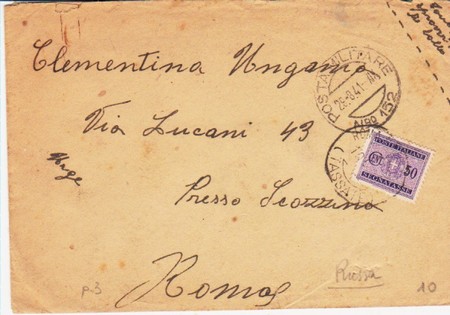 Clementina Ungania
Via Lucani 43
Presso Scozzino
Roma
POSTA MILITARE
25.8.41
152
POSTE ITALIANE
50
SEGNATASSE
Russia
p.3
10